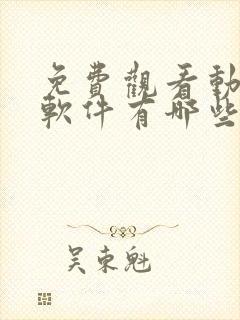 免費觀看動
軟件有哪些
吴東魁